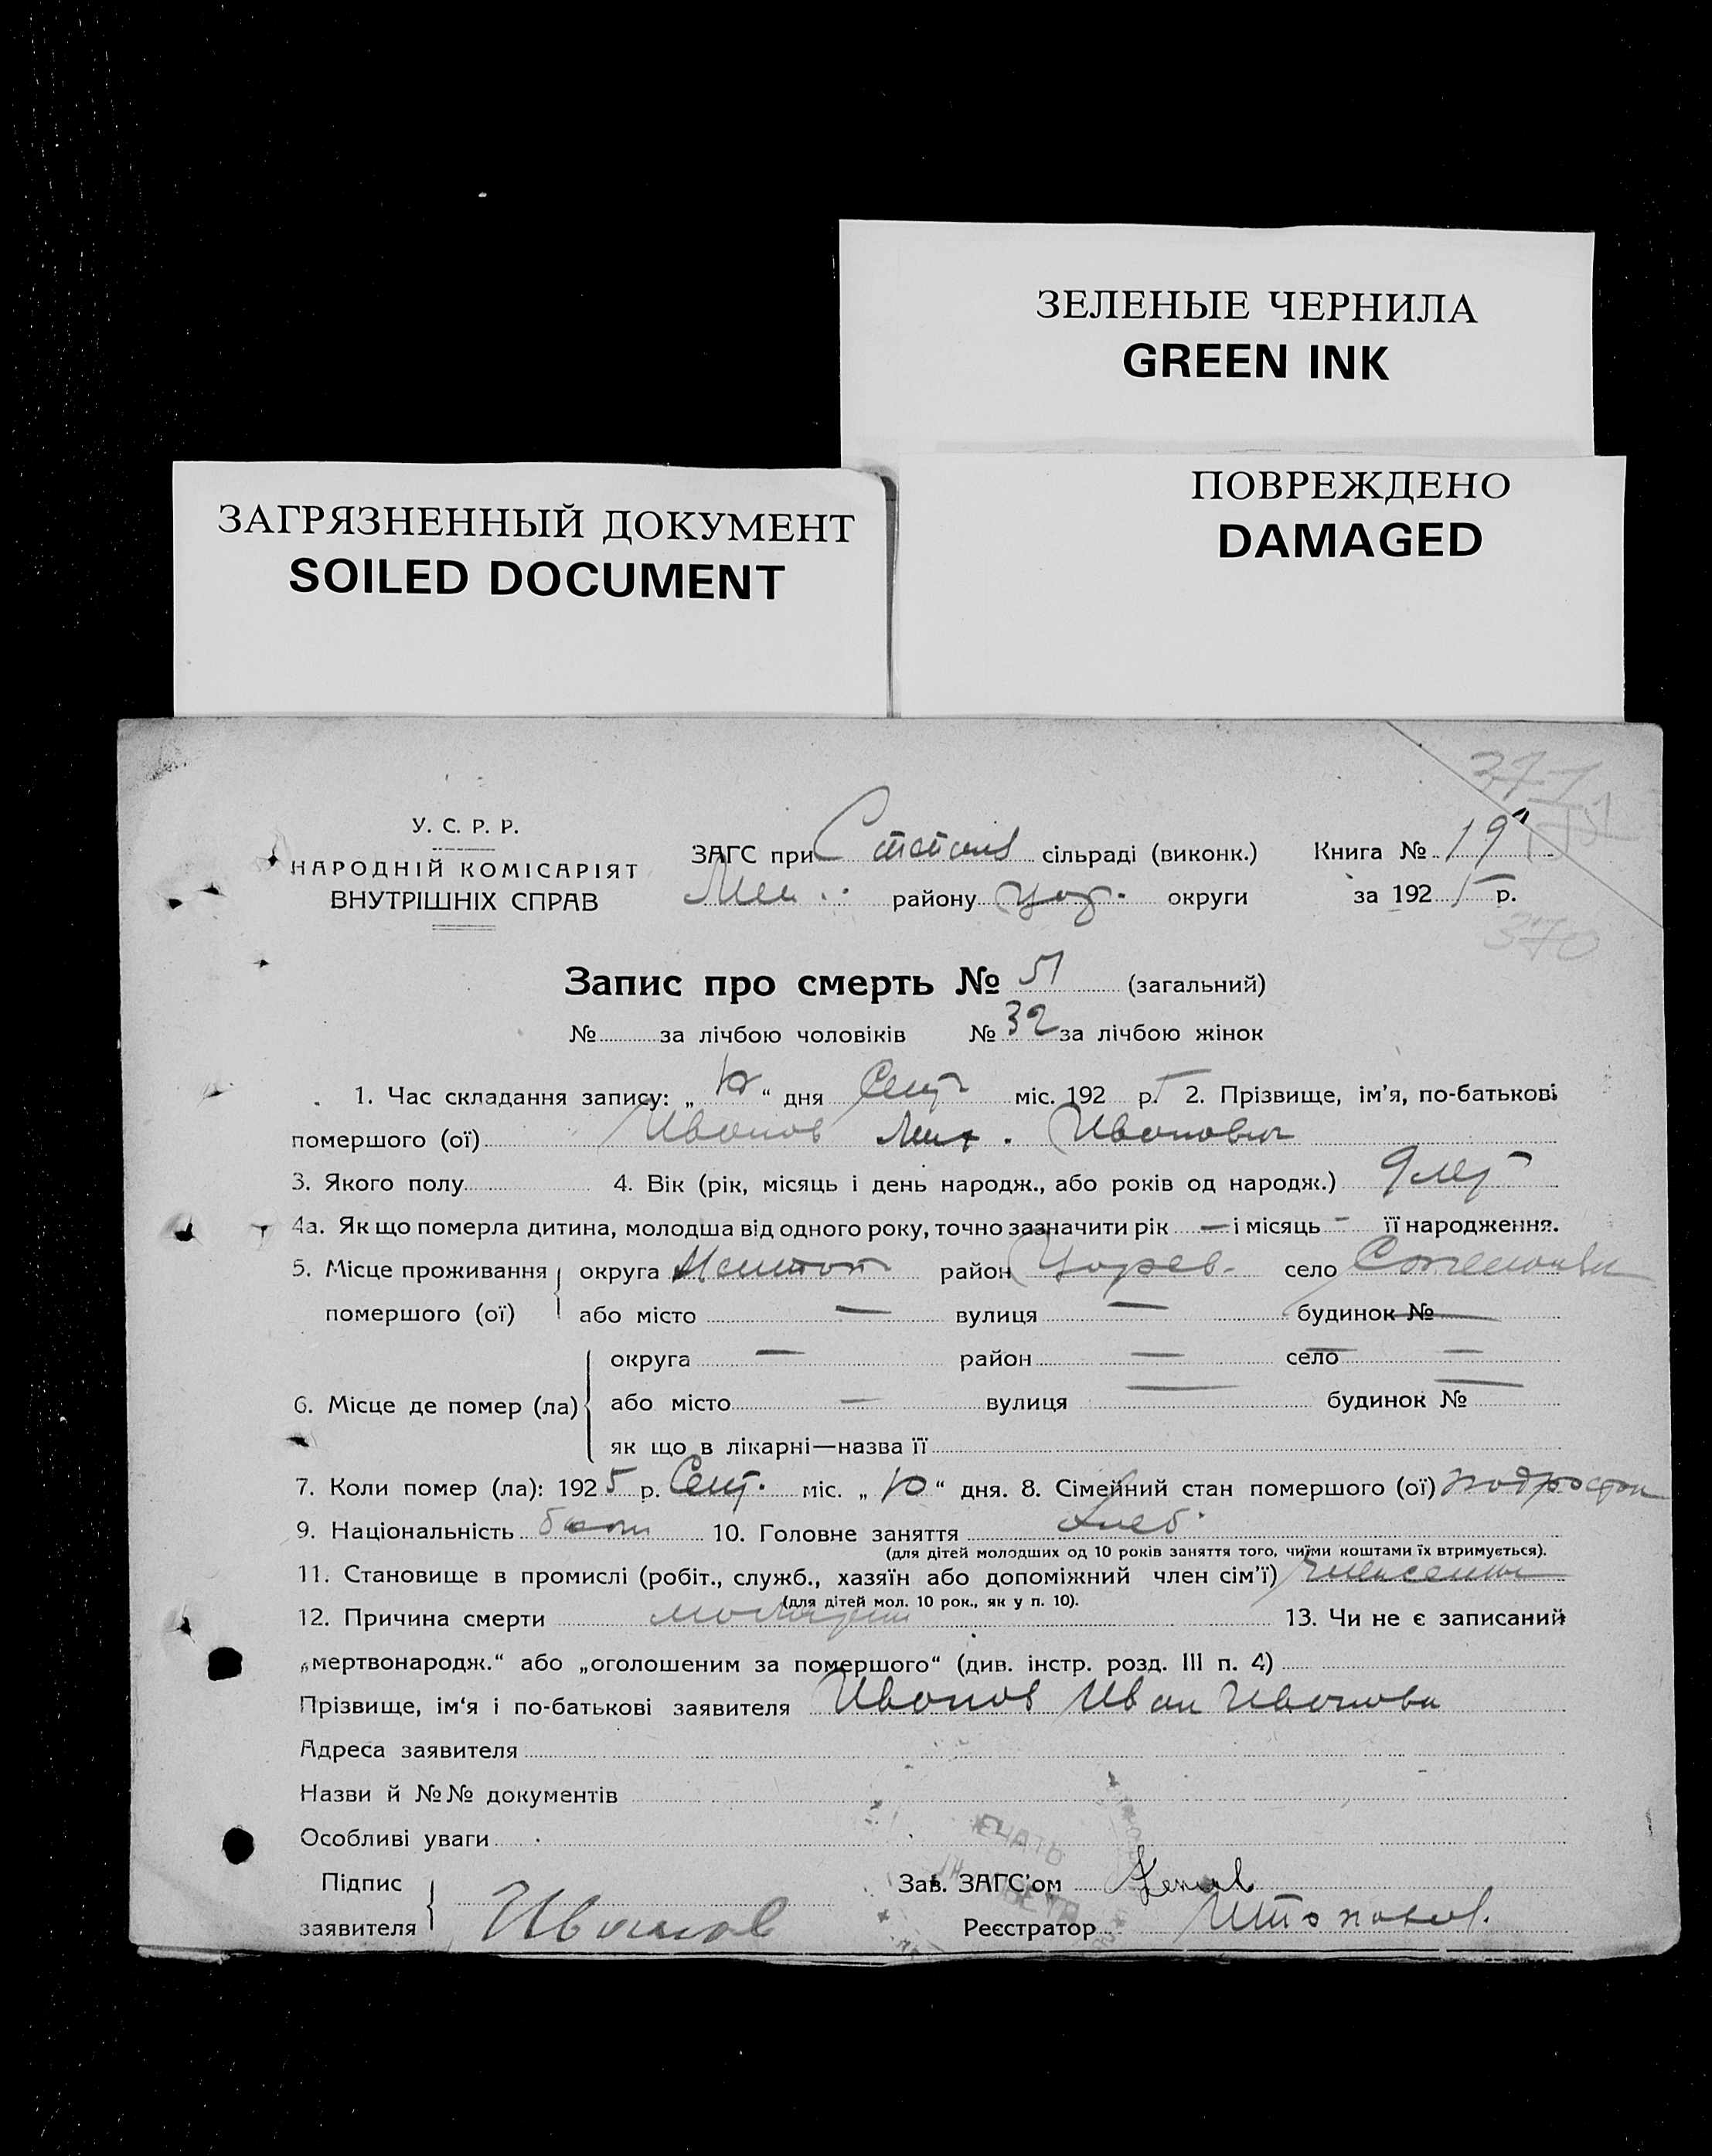 ЗЕЛЕНЫЕ ЧЕРНИЛА
GREEN INK
ПОВРЕЖДЕНО
DAMAGED
ЗАГРЯЗНЕННЫЙ ДОКУМЕНТ
SOILED DOCUMENT
371
У. С. Р. Р.
НАРОДНІЙ КОМІСАРІЯТ
ВНУТРІШНІХ СПРАВ
ЗАГС при сільраді (виконк.) Книга № 19
району округи за 192 5 р.
370
Запис про смерть № 51 (загальний)
№ за лічбою чоловіків № 32 за лічбою жінок
1. Час складання запису: „ 10 “ дня Сент міс. 192 р. 5 2. Прізвище, ім'я, по-батькові
помершого (ої) Иванов Мих. Иванович
3. Якого полу 4. Вік (рік, місяць і день народж., або років од народж.) 9 лет
4а. Як що померла дитина, молодша від одного року, точно зазначити рік — і місяць - її народження.
5. Місце проживання округа район Царев. село
помершого (ої) або місто — вулиця — будинок № —
округа — район — село —
6. Місце де помер (ла) або місто — вулиця — будинок № —
як що в лікарні—назва її
7. Коли помер (ла): 1925 р. Сент. міс. „ 10 “ дня. 8. Сімейний стан помершого (ої) подросток
9. Національність 10. Головне заняття хлеб.
(для дітей молодших од 10 років заняття того, чиїми коштами їх втримується).
11. Становище в промислі (робіт., служб., хазяїн або допоміжний член сім'ї) член семьи
(для дітей мол. 10 рок., як у п. 10).
12. Причина смерти 13. Чи не є записаний
„мертвонародж.“ або „оголошеним за помершого“ (див. інстр. розд. III п. 4)
Прізвище, ім'я і по-батькові заявителя Иванов Иван Иванови
Адреса заявителя
Назви й №№ документів
Особливі уваги
Підпис Зав. ЗАГС'ом
заявителя Иванов Реєстратор